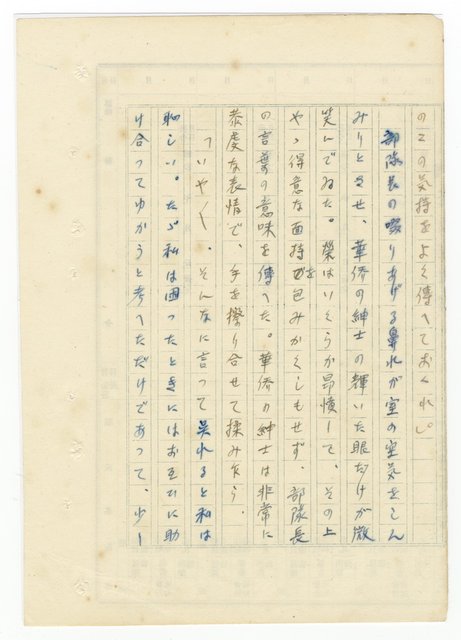 のこの気持をよく傳へておくれ」
部隊長の啜りあげる鼻水が室の空気をしん
みりとさせ、華僑の紳士の輝いた眼だけが微
笑んでゐた。榮はいくらか昂憤して、その上
やゝ得意な面持を包みかくしもせず、部隊長
の言葉の意味を傳へた。華僑の紳士は非常に
恭虔な表情で、手を擦り合せて揉みながら、
「いや〱、そんなに言って呉れると私は
恥しい。たゞ私は困ったときにはお互ひに助
け合ってゆかうと考へただけであって、少し